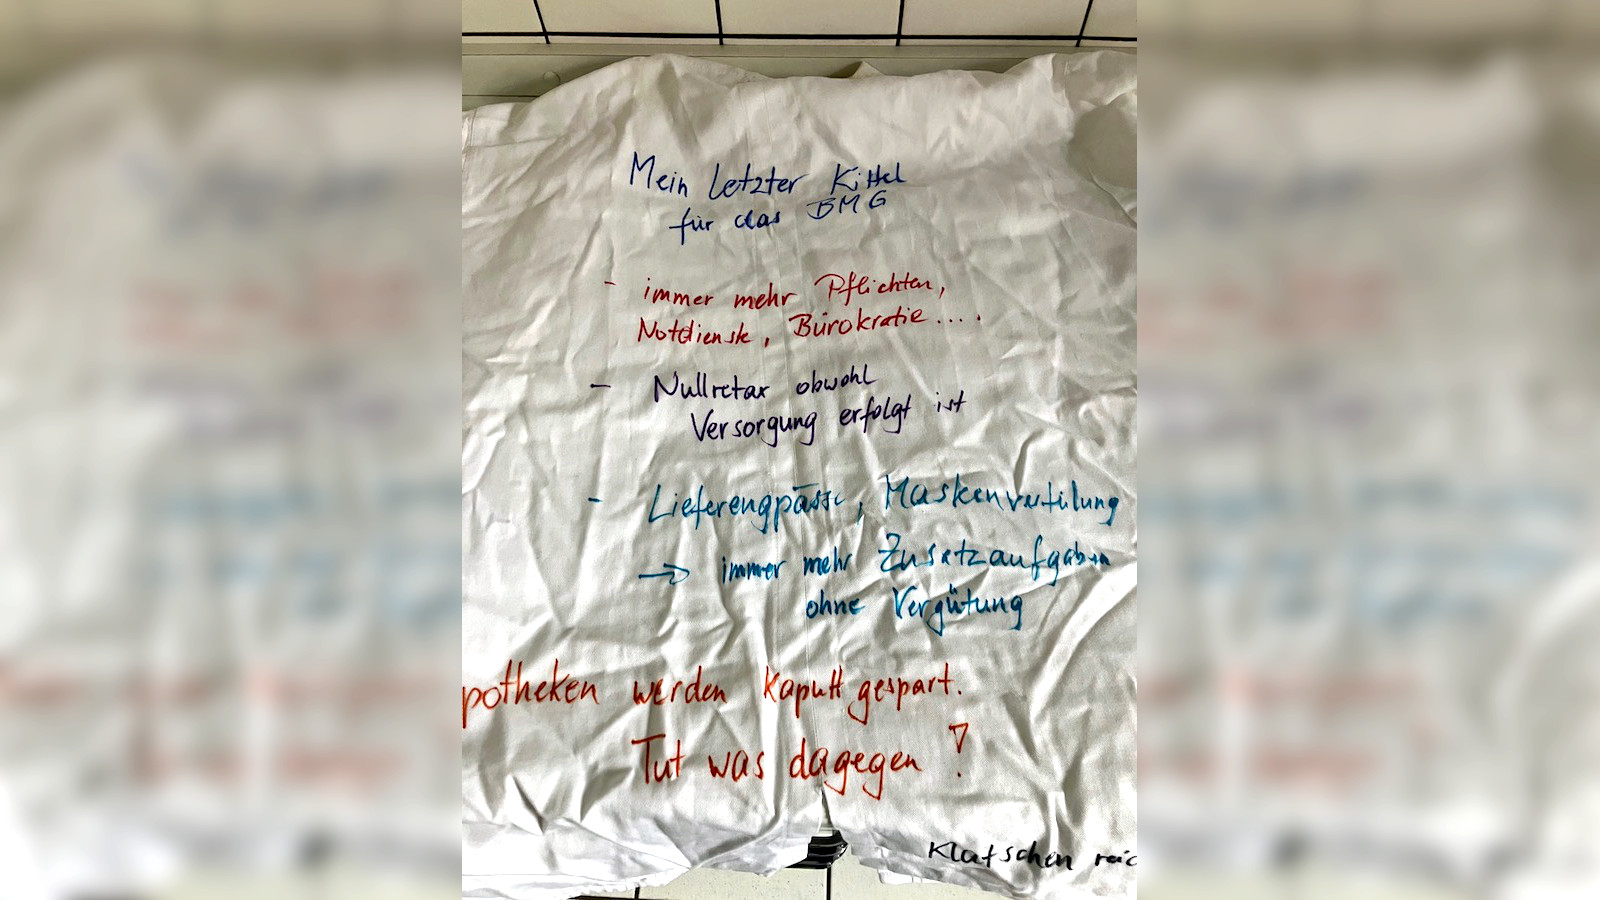 Mein letzter Kittel
für das BMG
- immer mehr Pflichten,
Notdienste, Bürokratie....
- Nullretax obwohl
Versorgung erfolgt ist
- Lieferengpässe, Maskenverteilung
→ immer mehr Zusatzaufgaben
ohne Vergütung
potheken werden kaputt gespart.
Tut was dagegen!
Klatschen reic